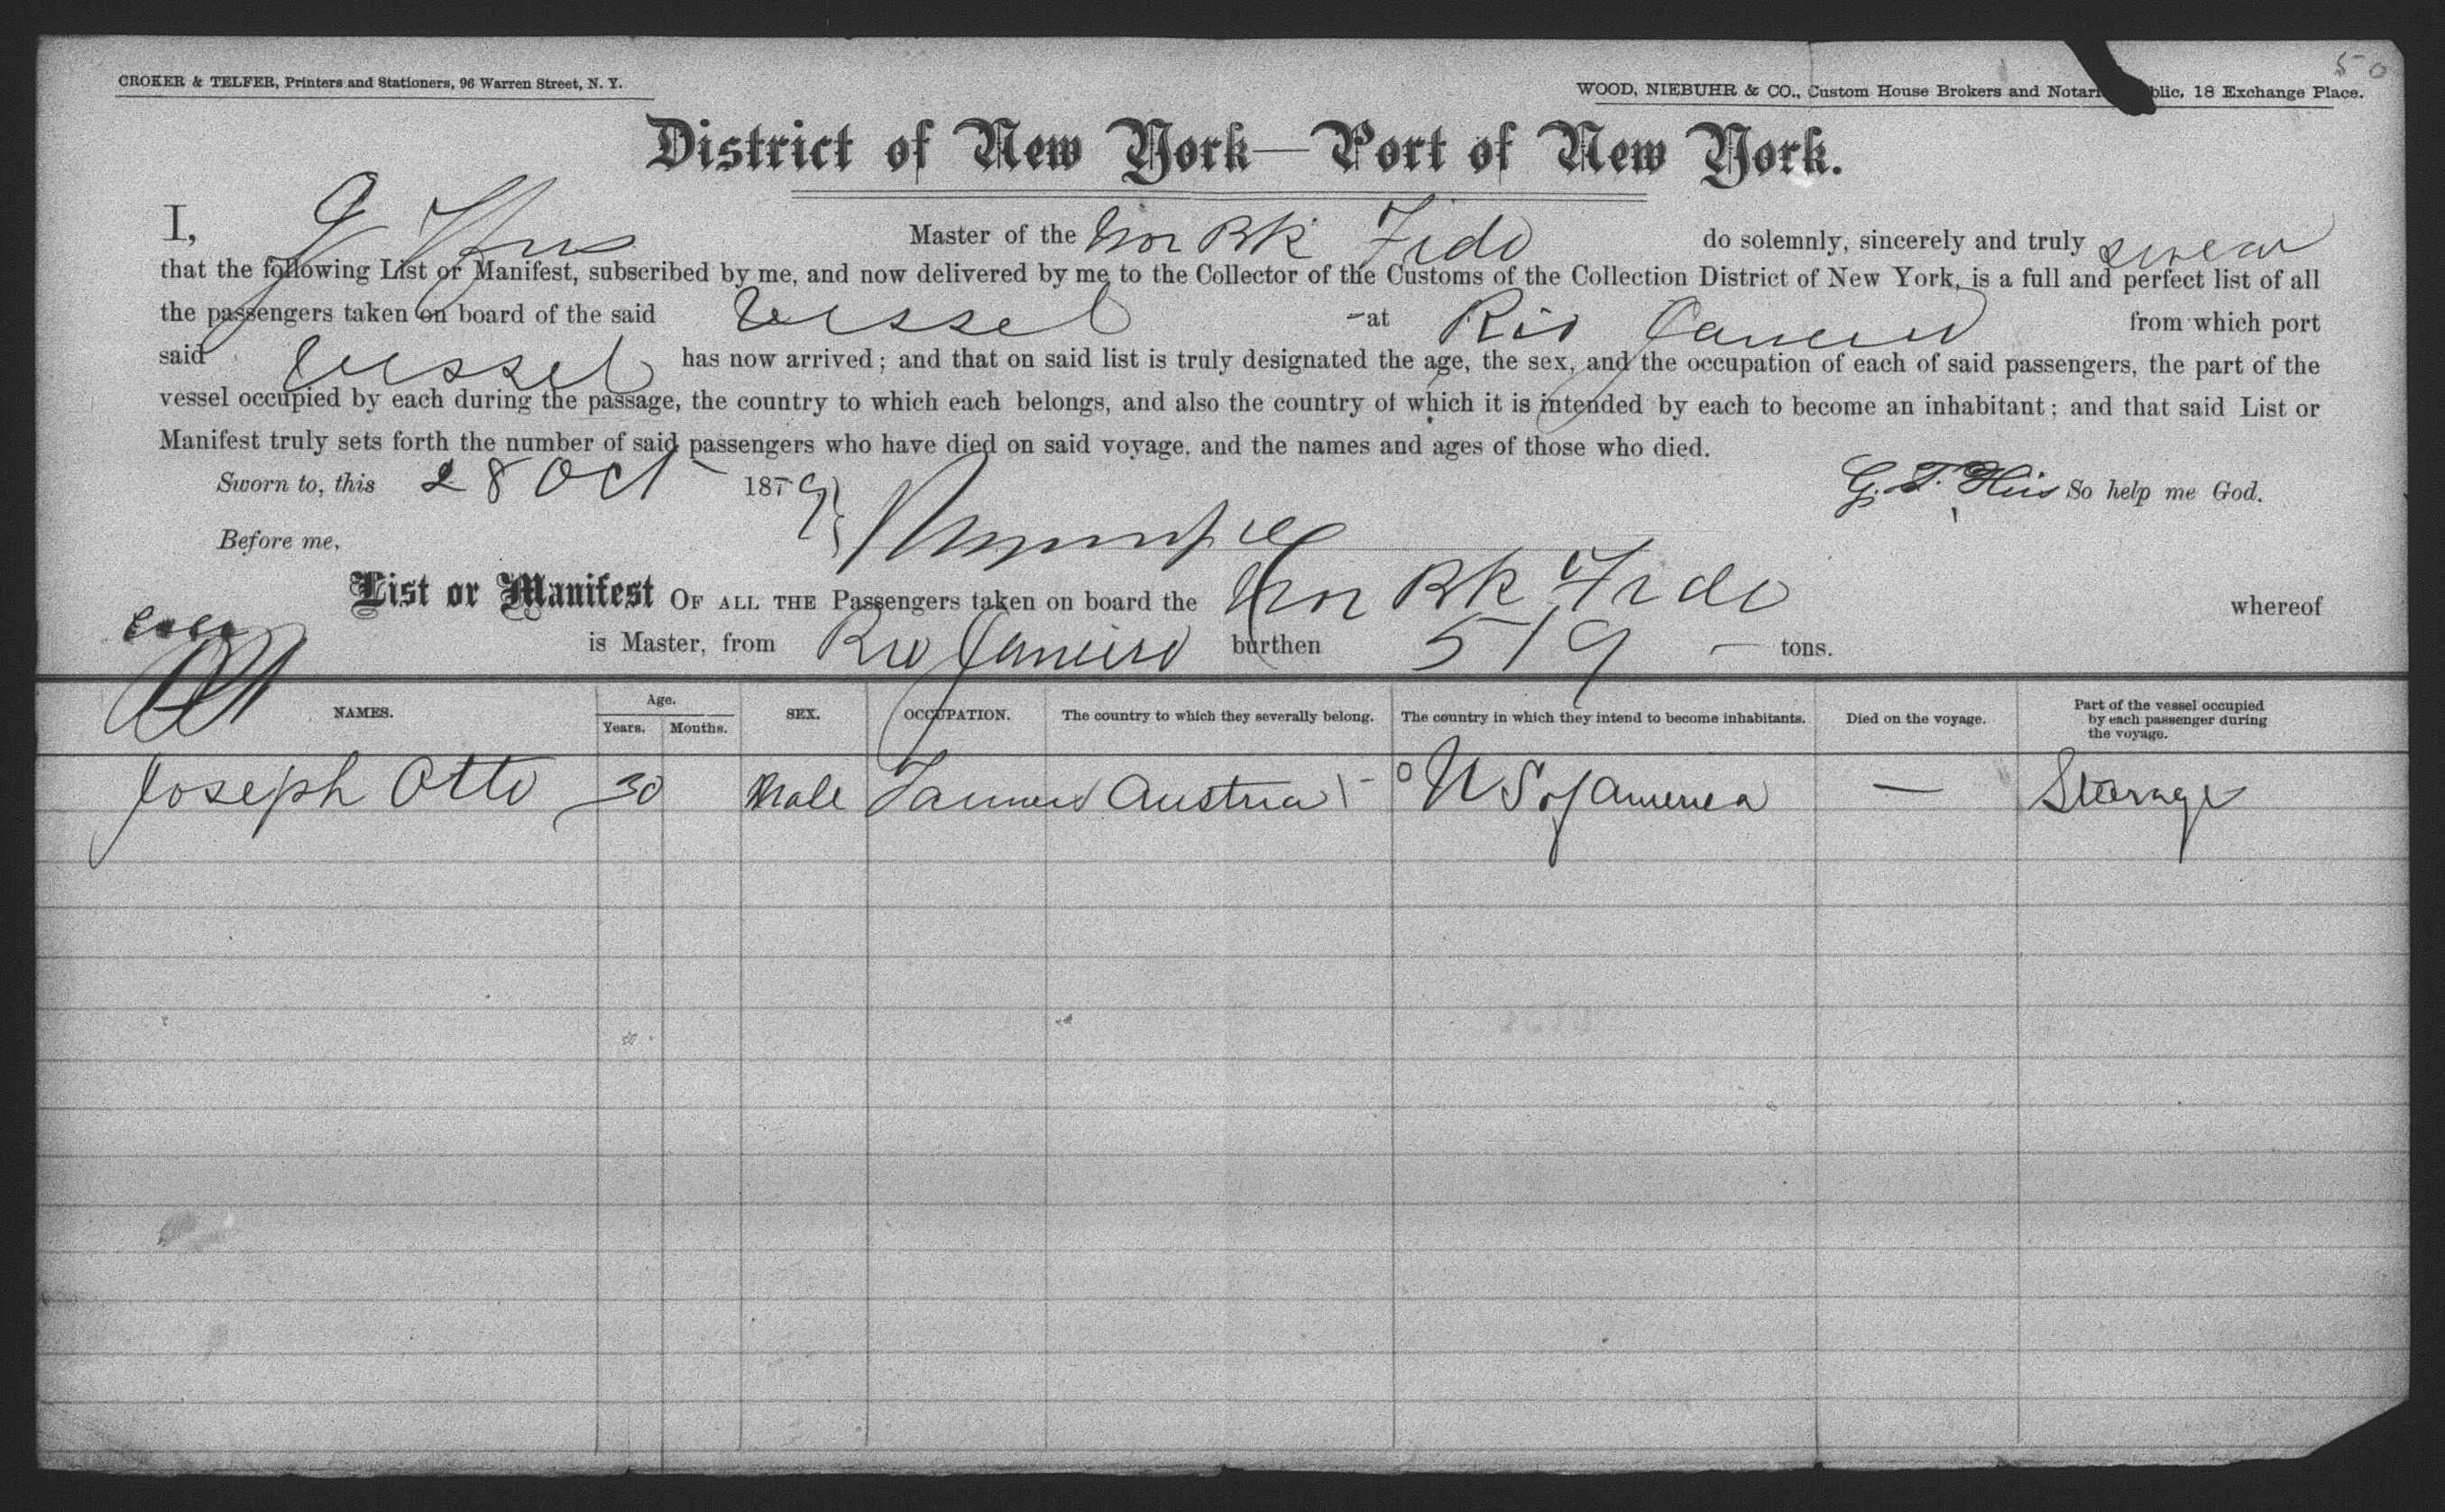 50
CROKER & TELFER, Printers and Stationers, 96 Warren Street, N. Y.
WOOD, NIEBUHR & CO., Custom House Brokers and Notari blic, 18 Exchange Place.
District of New York—Port of New York.
I, G Master of the Nor Bk Fido do solemnly, sincerely and truly swear
that the following List or Manifest, subscribed by me, and now delivered by me to the Collector of the Customs of the Collection District of New York, is a full and perfect list of all
the passengers taken on board of the said Vessel at Rio Janeiro from which port
said Vessel has now arrived; and that on said list is truly designated the age, the sex, and the occupation of each of said passengers, the part of the
vessel occupied by each during the passage, the country to which each belongs, and also the country of which it is intended by each to become an inhabitant; and that said List or
Manifest truly sets forth the number of said passengers who have died on said voyage, and the names and ages of those who died.
Sworn to, this 28 Oct 1879 G. T. So help me God.
Before me,
List or Manifest OF ALL THE Passengers taken on board the Nor Bk Fido whereof
is Master, from Rio Janeiro burthen 519 — tons.
NAMES. Age. Years. Months. SEX. OCCUPATION. The country to which they severally belong. The country in which they intend to become inhabitants. Died on the voyage. Part of the vessel occupied by each passenger during the voyage.
Joseph Otto 30 Male Austria U S of America — Steerage